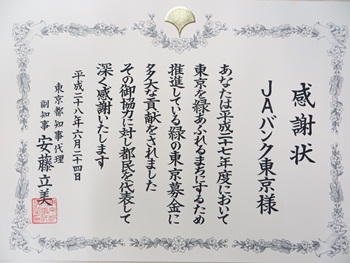 感謝状
JAバンク東京様
あなたは平成二十七年度において
東京を緑あふれるまちにするため
推進している緑の東京募金に
多大な貢献をされました
その御協力に対し都民を代表して
深く感謝いたします
平成二十八年六月二十四日
東京都知事代理
副知事 安藤立美